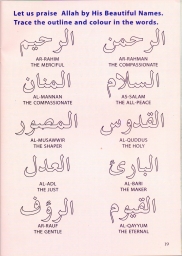 Let us praise Allah by His Beautiful Names.
Trace the outline and colour in the words.
الرحيم الرحمن
AR-RAHIM AR-RAHMAN
THE MERCIFUL THE COMPASSIONATE
المنان السلام
AL-MANNAN AS-SALAM
THE COMPASSIONATE THE ALL-PEACE
المصور القدوس
AL-MUSAWWIR AL-QUDDUS
THE SHAPER THE HOLY
العدل البارئ
AL-ADL AL-BARI
THE JUST THE MAKER
الرؤف القيوم
AR-RAUF AL-QAYYUM
THE GENTLE THE ETERNAL